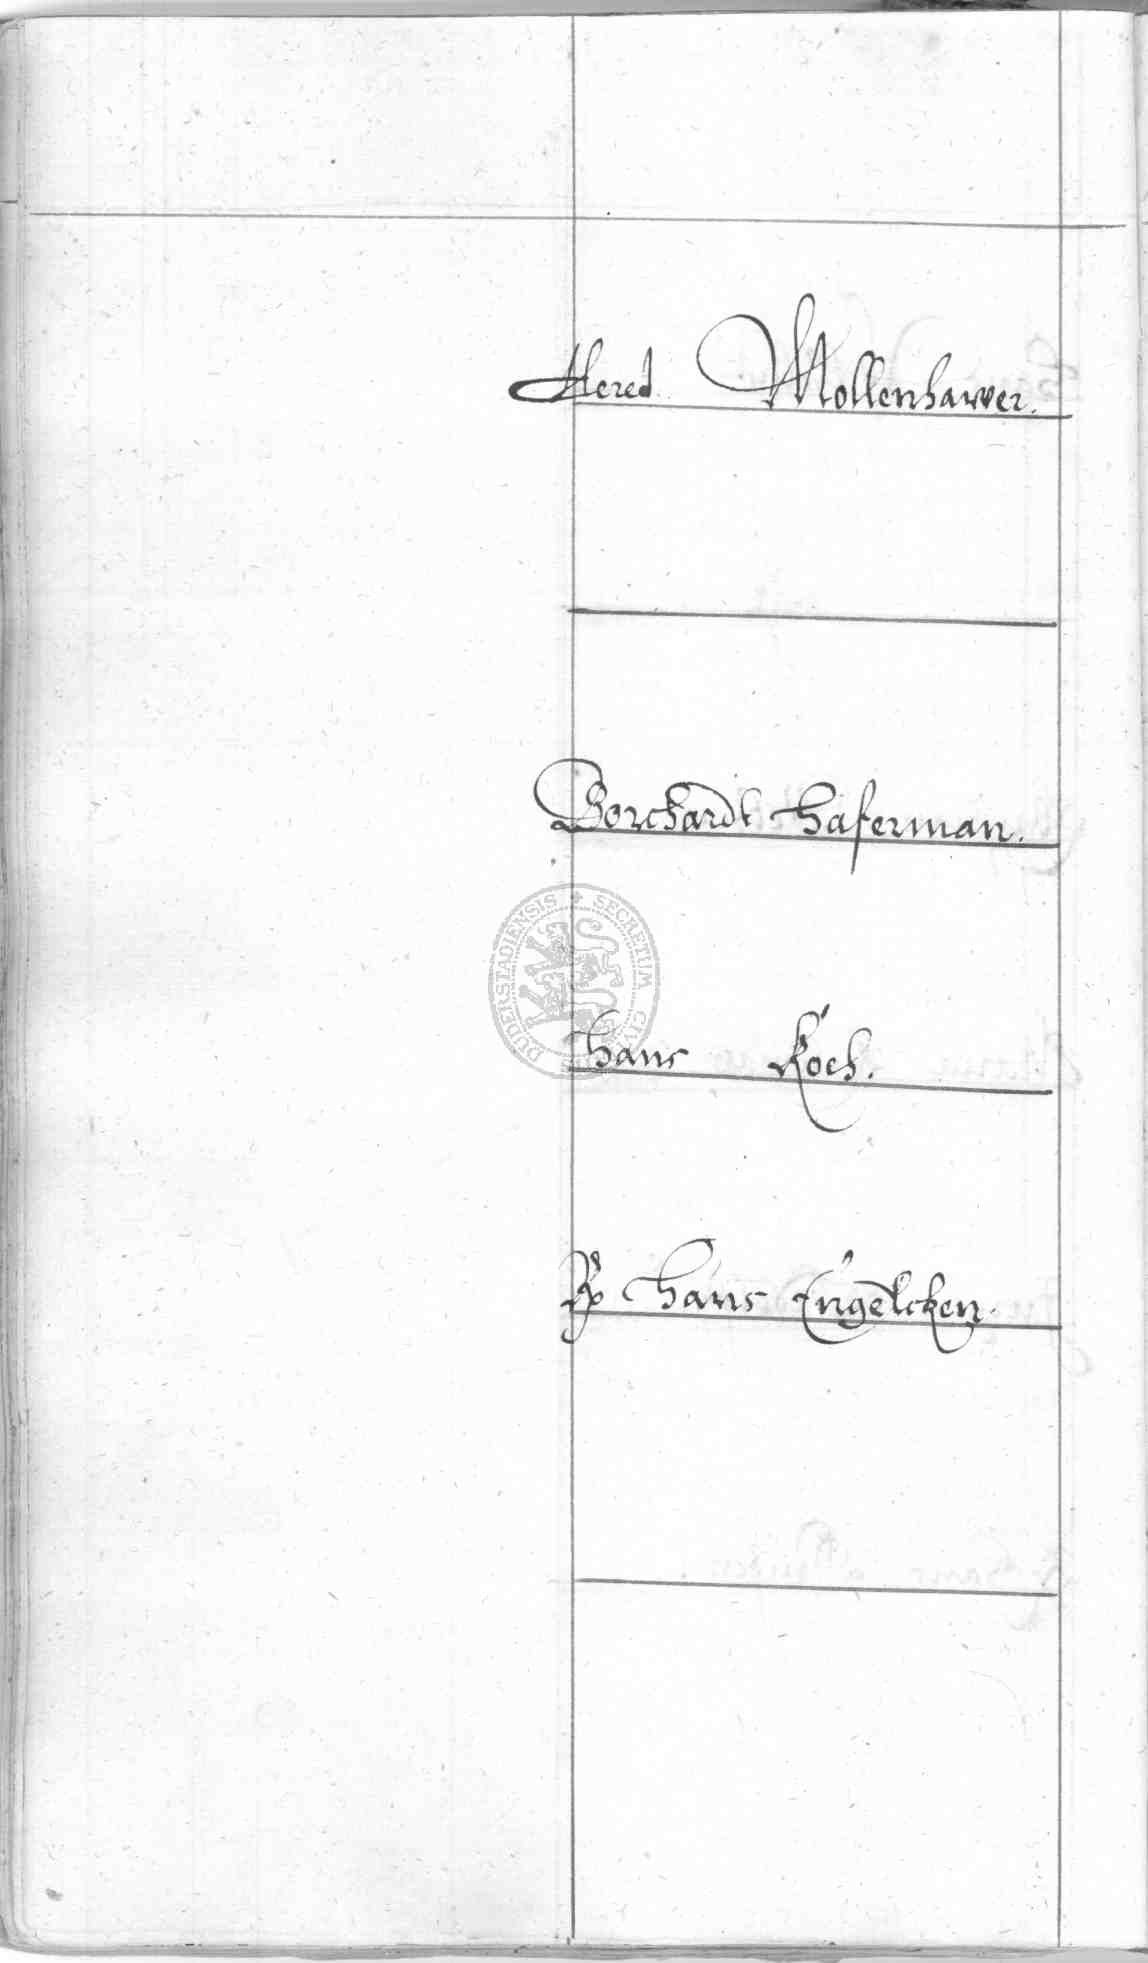 Hered. Mollenhawer.
Borchardt Haferman.
DUDERSTADIENSIS ✦ SECRETUM CIVI
Hans Koch.
Hans Engelcken.